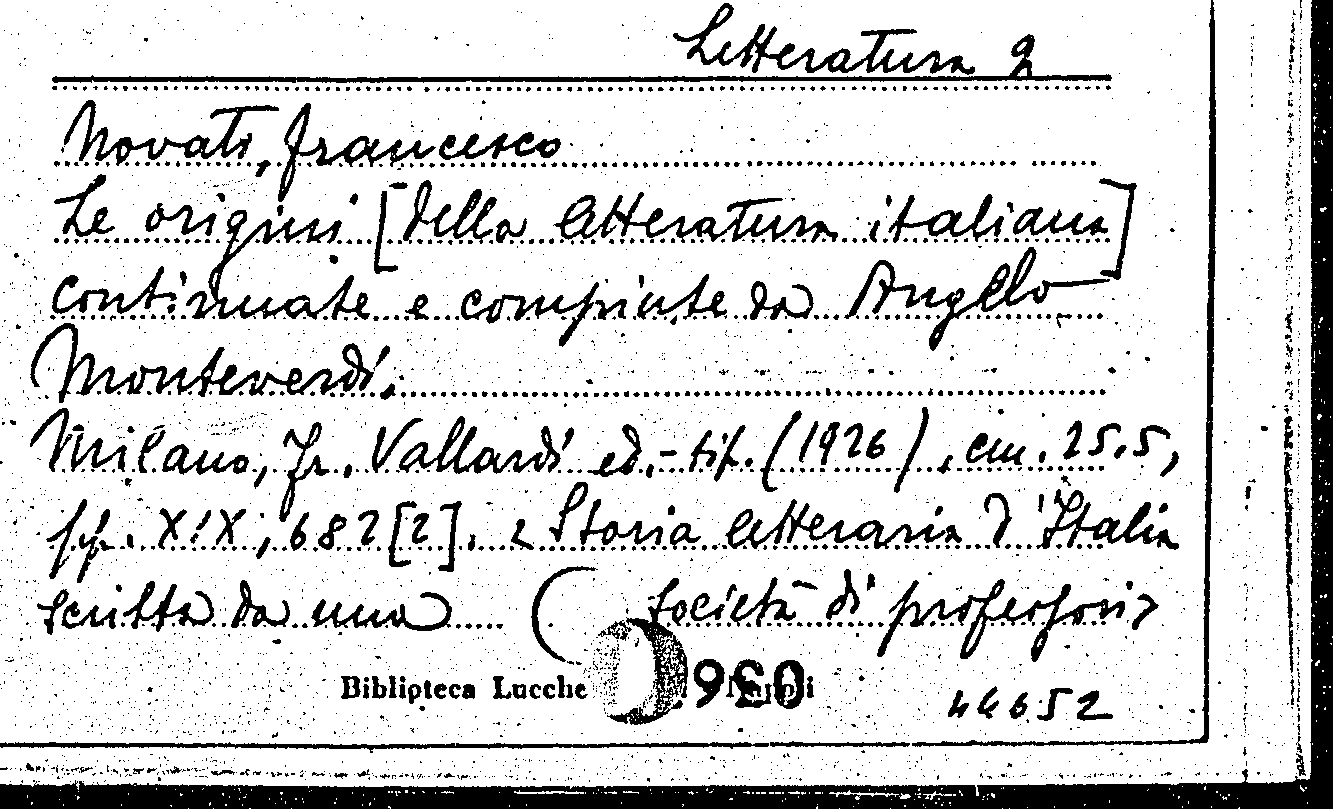 Letteratura 2
Novati, Francesco
Le origini [della letteratura italiana]
continuate e compiute da Angelo
Monteverdi.
Milano, Fr. Vallardi ed.-tip. (1926), cm. 25.5,
pp. XIX, 682 [2]. « Storia letteraria d'Italia
scritta da una società di professori»
Biblioteca Lucche
44652